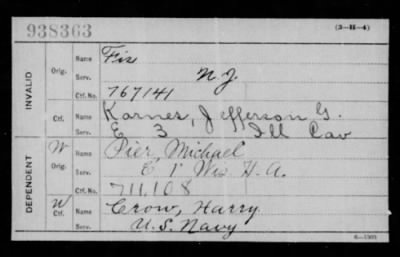 938363
(3-H-4)
INVALID
Orig. Name
Serv. N.J.
Ctf. No. 767141
Ctf. Name Karnes, Jefferson G.
Serv. E 3 Ill Cav
DEPENDENT
W Orig. Name Pier, Michael
Serv. E 1" Wis H.A.
Ctf. No. 711,108
W Ctf. Name Crow, Harry
Serv. U.S. Navy